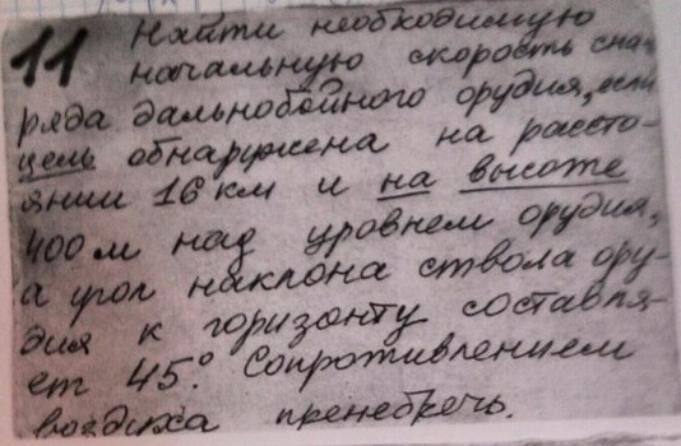 11 Найти необходимую
начальную скорость сна-
ряда дальнобойного орудия, если
цель обнаружена на рассто-
янии 16 км и на высоте
400 м над уровнем орудия,
а угол наклона ствола ору-
дия к горизонту составля-
ет 45°. Сопротивлением
воздуха пренебречь.